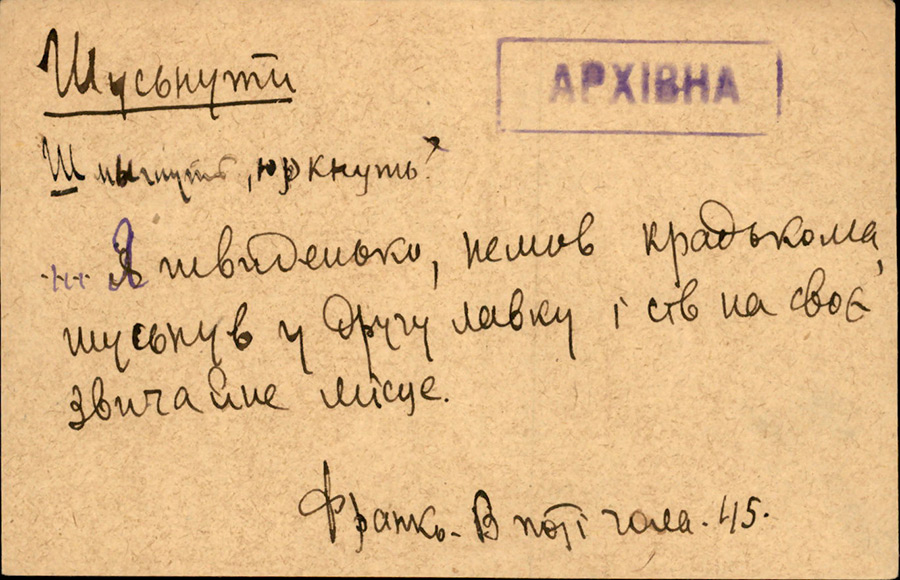 Шуснути
АРХІВНА
Шмыгнуть, юркнуть?
... Я швиденько, немов крадькома,
шуснув у другу лавку і сів на своє
звичайне місце.
Франко. В поті чола. 45.